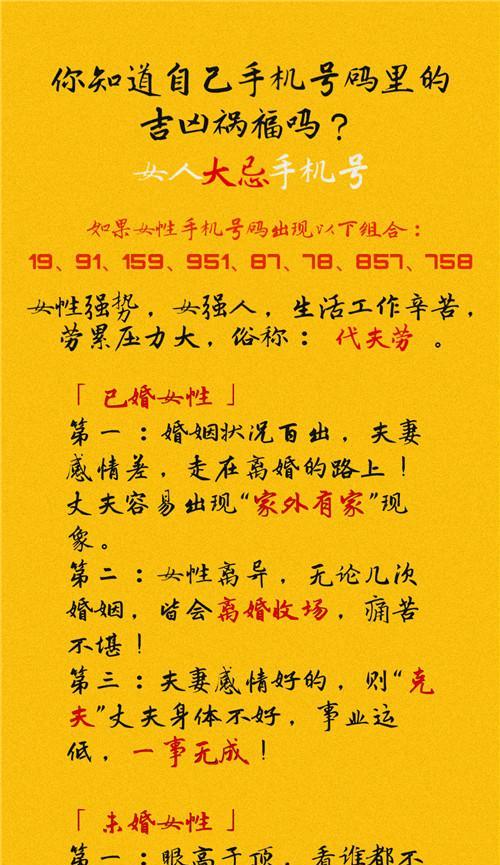 你知道自己手机号码里的
吉凶祸福吗？
女人大忌手机号
如果女性手机号码出现以下组合：
19、91、159、951、87、78、857、758
女性强势，女强人，生活工作辛苦，
劳累压力大，俗称：代夫劳。
「已婚女性」
第一：婚姻状况百出，夫妻
感情差，走在离婚的路上！
丈夫容易出现“家外有家”现
象。
第二：女性离异，无论几次
婚姻，皆会离婚收场，痛苦
不堪！
第三：夫妻感情好的，则“克
夫”丈夫身体不好，事业运
低，一事无成！
「未婚女性」
第一：眼高于顶，看谁都不